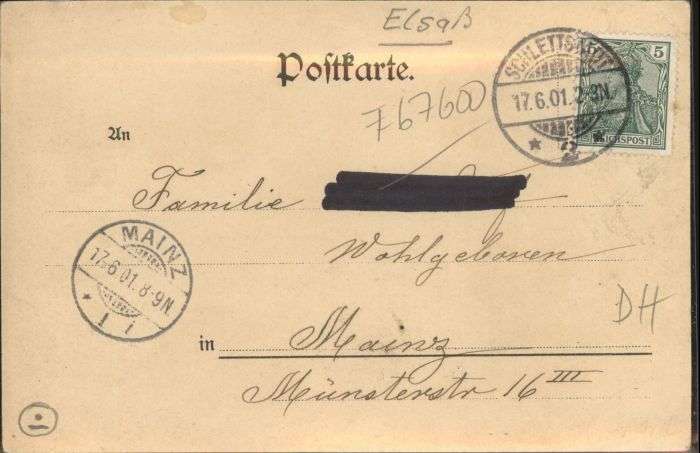 Elsaß
Postkarte.
SCHLETTSTADT
17.6.01.2-3N.
* 2 *
5
REICHSPOST
767600
An
Familie
Wohlgeboren
MAINZ
17.6.01.8-9N
* 1 i
DH
in Mainz
Münsterstr 16 III